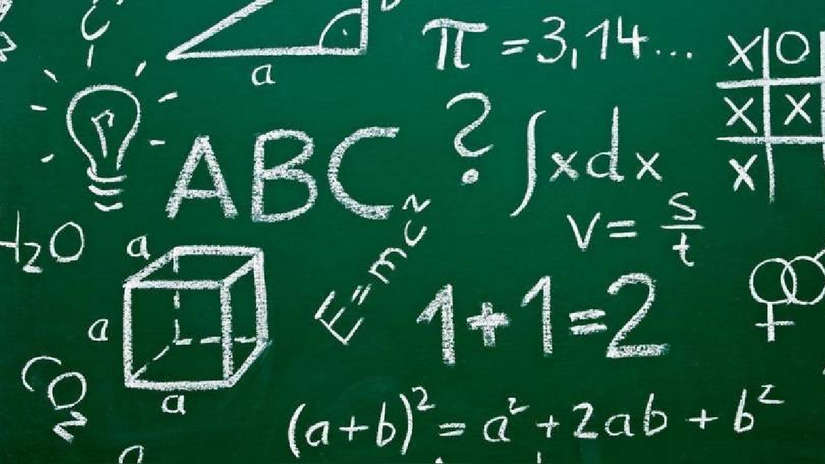 a
π = 3,14...
X O
X X
X
?
∫xdx
ABC
v = s/t
H₂O
a
E=mc²
a
1+1=2
a
CO₂
(a+b)² = a² + 2ab + b²